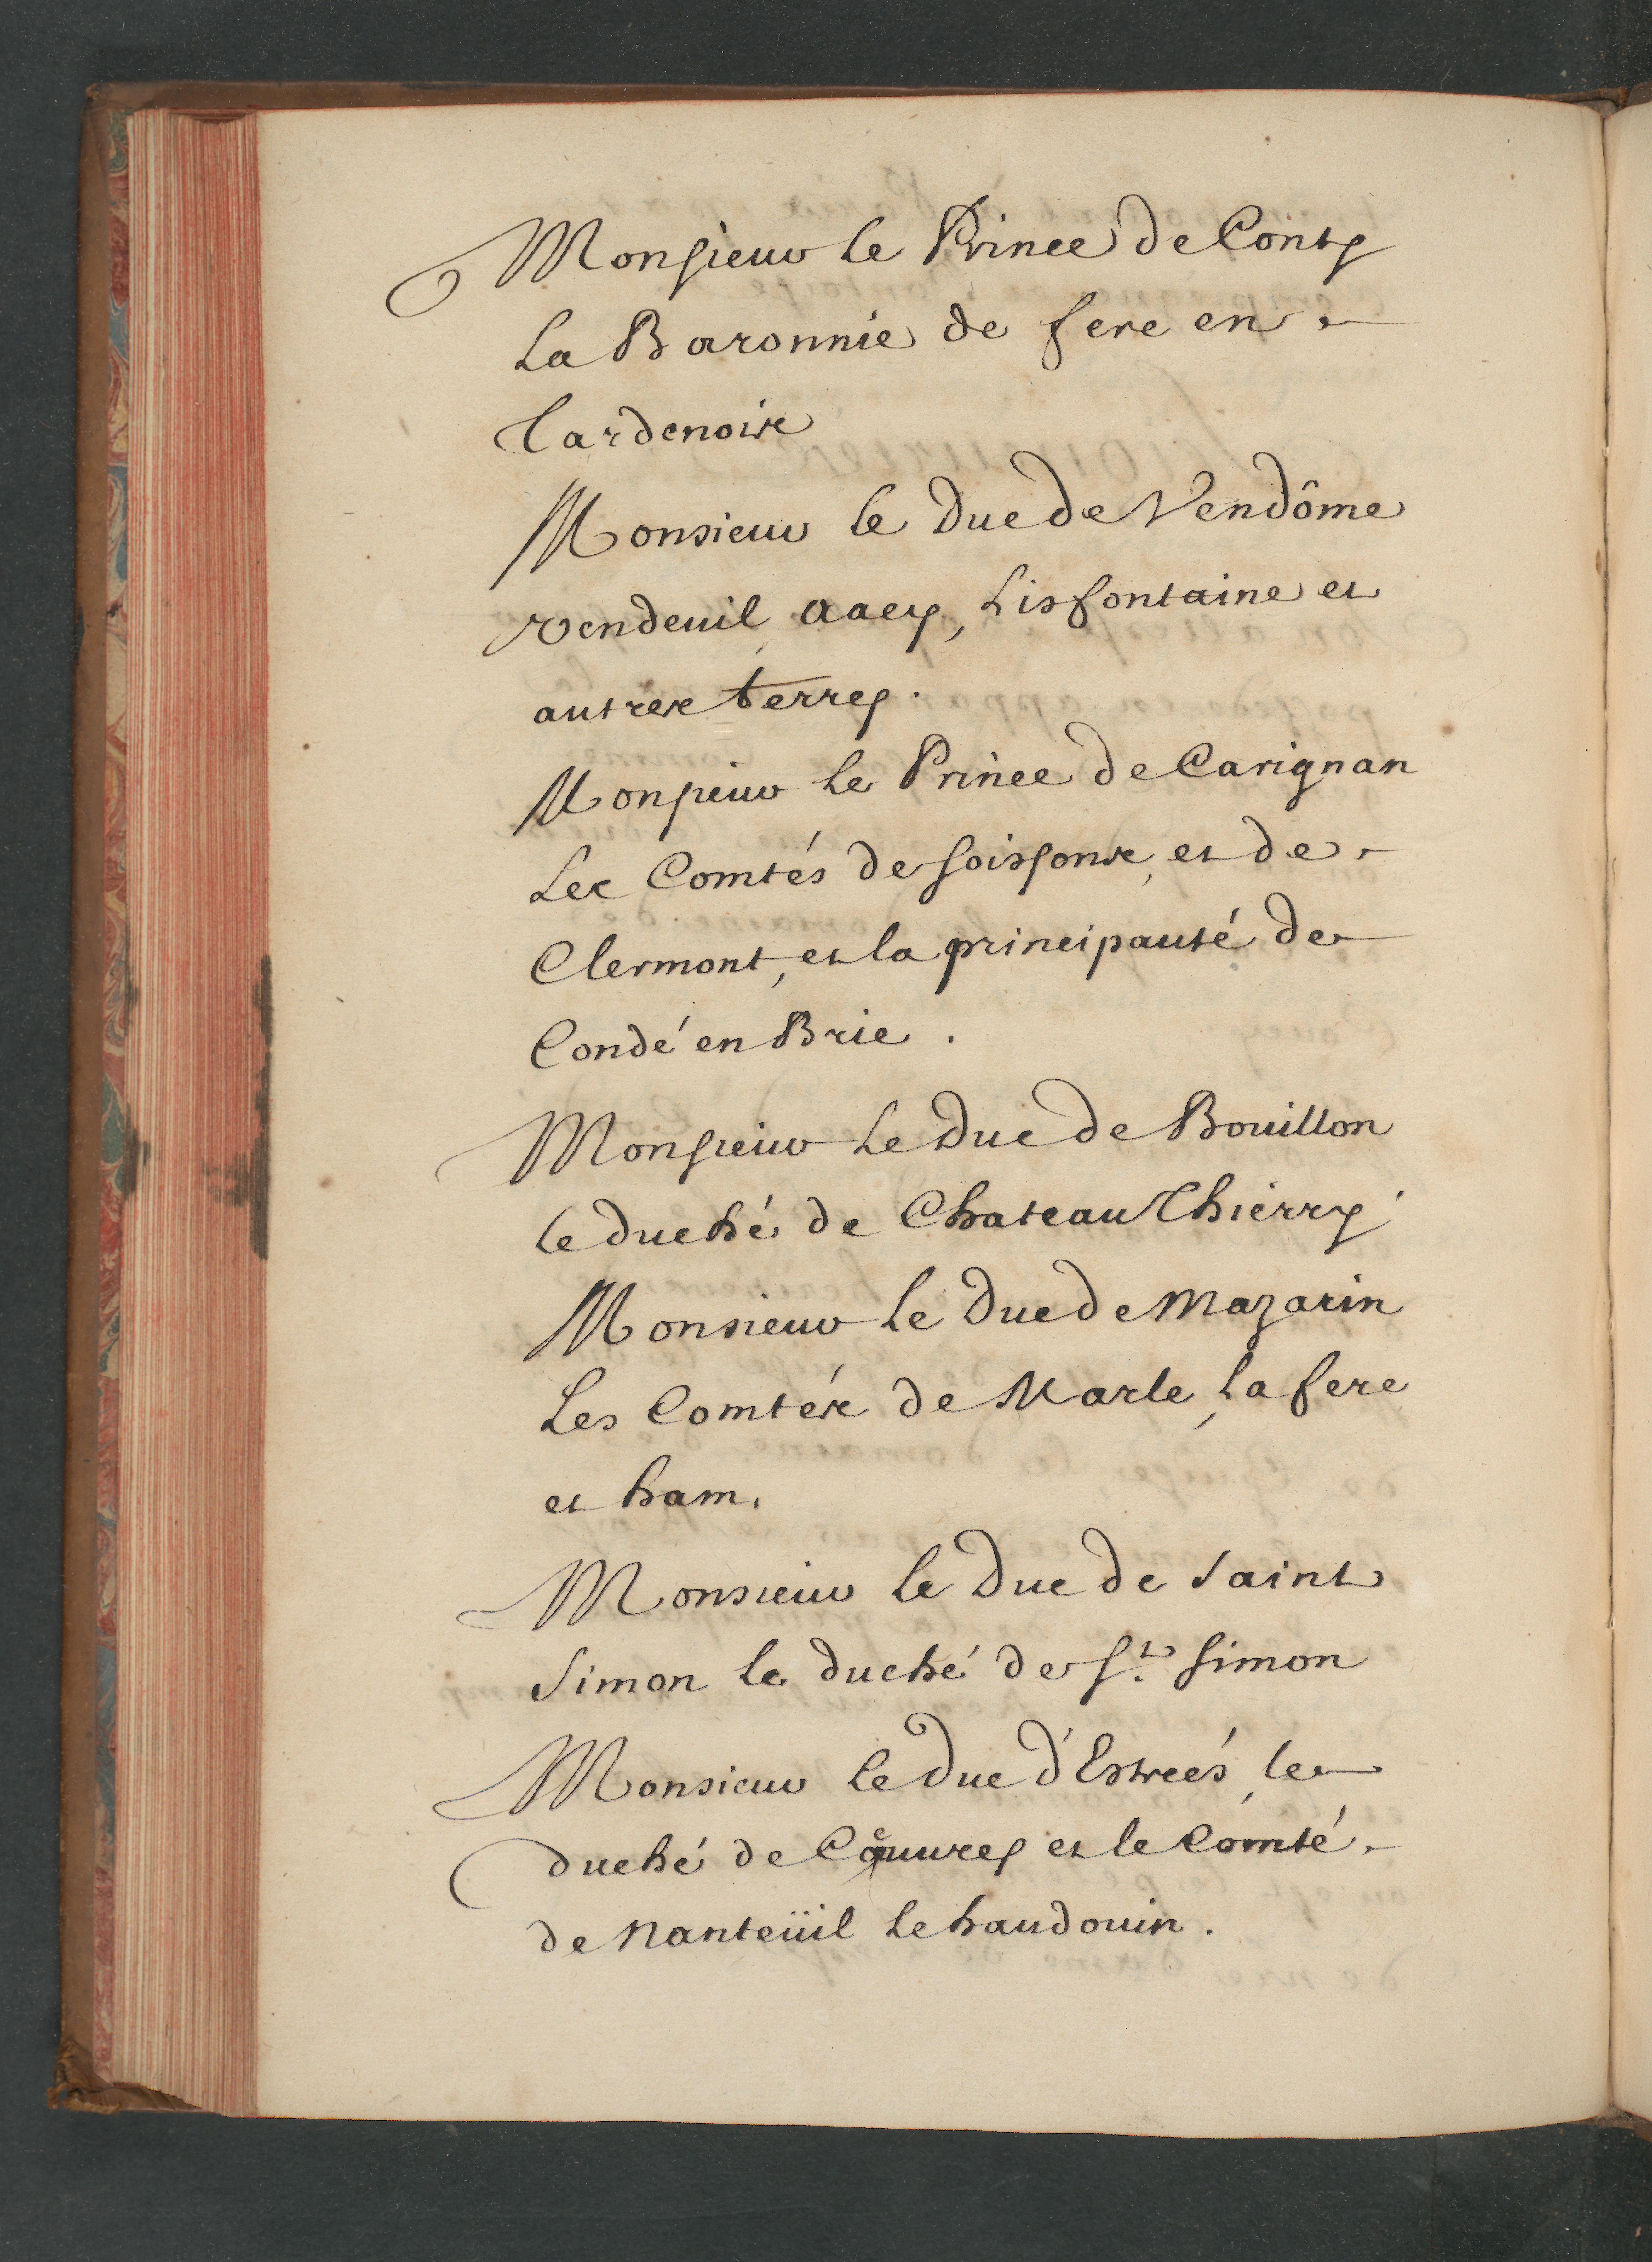 Monsieur le Prince de Conty
La Baronnie de fere en
Tardenois
Monsieur le Duc de Vendôme
Vendeuil, aacy, Lisfontaine et
autres terres.
Monsieur le Prince de Carignan
Les Comtés de soissons, et de
Clermont, et la principauté de
Condé en Brie.
Monsieur Le Duc de Bouillon
le duché de Chateau Thierry
Monsieur le Duc de Mazarin
Les Comtés de Marle, La fere
et ham.
Monsieur le Duc de Saint
Simon le duché de St. Simon
Monsieur le Duc d'Estreés, le
duché de Cœuvres et le Comté
de Nanteüil le haudouin.